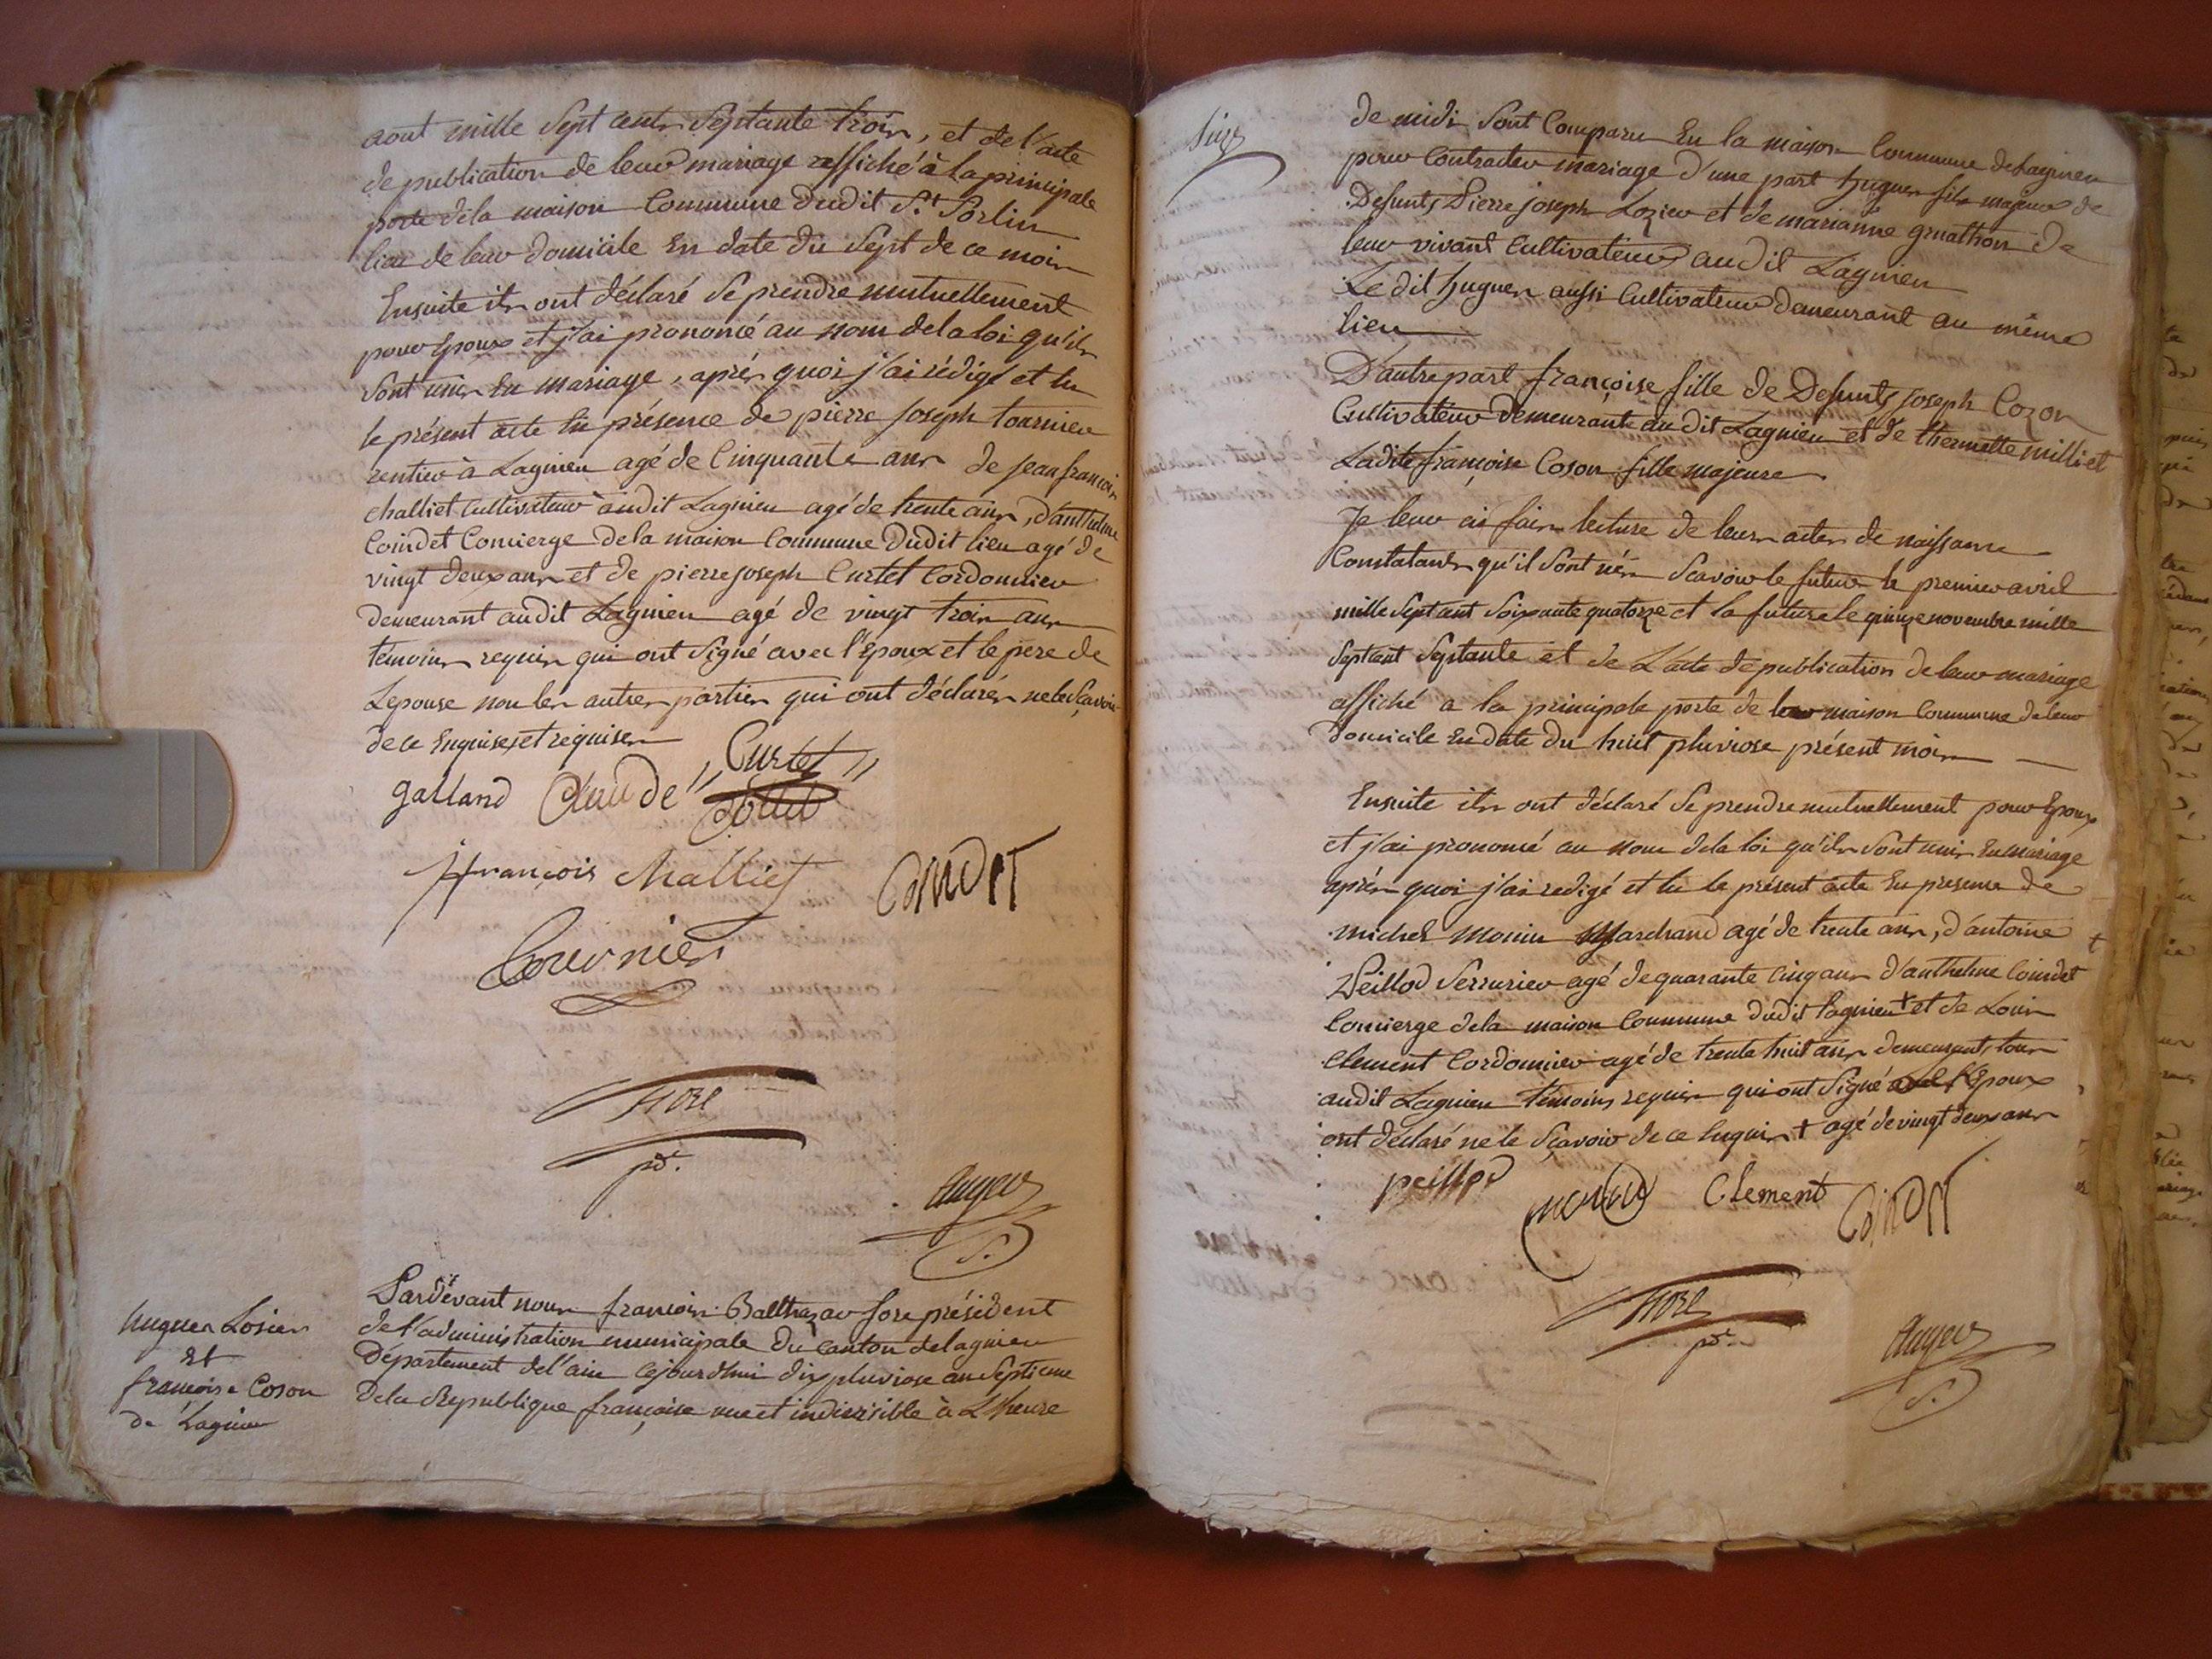 aout mille Sept cents Septante trois, et de l'acte
de publication de leur mariage affiché à la principale
porte de la maison Commune dudit St. Sorlin
lieu de leur domicile En date du Sept de ce mois
Ensuite ils ont déclaré Se prendre mutuellement
pour Epoux et j'ai prononcé au nom de la loi qu'ils
Sont unis En mariage, après quoi j'ai rédigé et lu
le présent acte En présence de pierre Joseph tournier
rentier à Lagnieu agé de Cinquante ans de Jean françois
challiet Cultivateur audit Lagnieu agé de trente ans, d'anthelme
Coindet Concierge de la maison Commune dudit lieu agé de
vingt deux ans et de pierre joseph Curtet Cordonnier
demeurant audit Lagnieu agé de vingt trois ans
témoins requis qui ont Signé avec l'Epoux et le père de
Lepouse non les autres parties qui ont déclarés ne le Sçavoir
de ce Enquises et requises
galland Claude Curtet
jfrançois challiet Coindet
tournier
Sore
pdt.
Auger
S.
hugues Losier
Et
françoise Coson
de Lagnieu
Pardevant nous françois Balthazar Sore président
de l'administration municipale du Canton de lagnieu
Département de l'ain cejourdhui dix pluviose an Septieme
de la République françoise une et indivisible à L'heure
de midi Sont Comparu En la maison Commune de Lagnieu
pour Contracter mariage D'une part hugues fils majeur de
Defunts Pierre joseph Lozier et de marianne gruathon de
leur vivant Cultivateurs audit Lagnieu
Ledit hugues aussi Cultivateur Demeurant au même
lieu
D'autre part françoise fille de Defunts joseph Cozon
Cultivateur Demeurant audit Lagnieu et de thermette milliet
Ladite françoise Coson fille majeure
Je leur ai fais lecture de leurs actes de naissance
Constatants qu'il Sont nés Scavoir le futur le premier avril
mille Sept cent Soixante quatorze et la future le quinze novembre mille
Sept cent Septante et de L'acte de publication de leur mariage
affiché a la principale porte de la maison Commune de leur
domicile En date du huit pluviose présent mois
Ensuite ils ont déclaré Se prendre mutuellement pour Epoux
et j'ai prononcé au nom de la loi qu'ils Sont unis En mariage
après quoi j'ai redigé et lu le présent acte En presence de
michel monin Marchand agé de trente ans, d'antoine
Peillod Serrurier agé de quarante cinq ans d'anthelme Coindet
Concierge de la maison Commune dudit lagnieu + et de Louis
Clement Cordonnier agé de trente huit ans demeurants tous
audit Lagnieu témoins requis qui ont Signé l'Epoux
ont déclaré ne le Sçavoir de ce Enquis + agé de vingt deux ans
peillod monin Clement Coindet
Sore
pdt.
Auger
S.